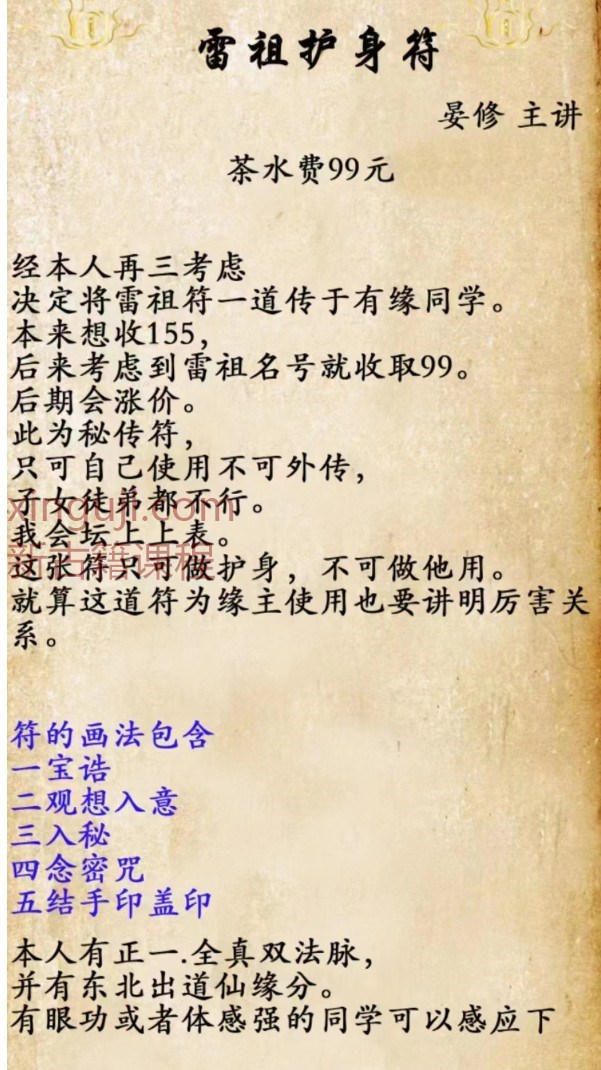 雷祖护身符
晏修 主讲
茶水费99元
经本人再三考虑
决定将雷祖符一道传于有缘同学。
本来想收155，
后来考虑到雷祖名号就收取99。
后期会涨价。
此为秘传符，
只可自己使用不可外传，
子女徒弟都不行。
xinguji.com
我会坛上上表。
新古籍课程
这张符只可做护身，不可做他用。
就算这道符为缘主使用也要讲明厉害关
系。
符的画法包含
一宝诰
二观想入意
三入秘
四念密咒
五结手印盖印
本人有正一.全真双法脉，
并有东北出道仙缘分。
有眼功或者体感强的同学可以感应下